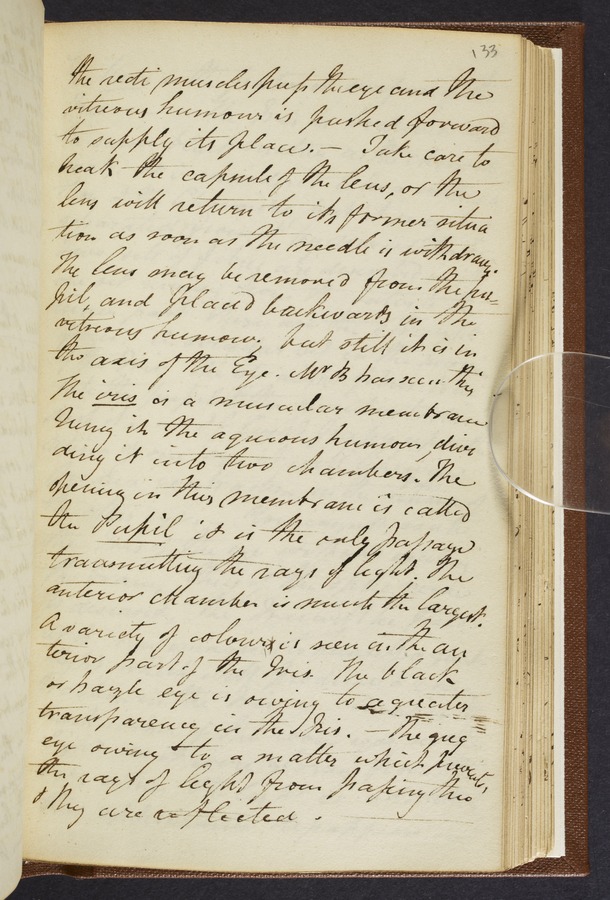 133
the recti muscles press the eye and the
vitreous humour is pushed forward
to supply its place. — Take care to
break the capsule of the lens, or the
lens will return to its former situa
tion as soon as the needle is withdrawn.
The lens may be removed from the pu=
pil, and placed backwards in the
vitreous humour, but still it is in
the axis of the Eye. Mr B has seen this
The iris is a muscular membrane
hung in the aqueous humour, divi
ding it into two chambers. The
opening in this membrane is called
the Pupil it is the only passage
transmitting the rays of light. The
anterior chamber is much the largest.
A variety of colours is seen in the an
terior part of the Iris. The black
or hazle eye is owing to a greater
transparency in the Iris. — The grey
eye owing to a matter which prevents
the rays of light, from passing thro
& they are reflected.